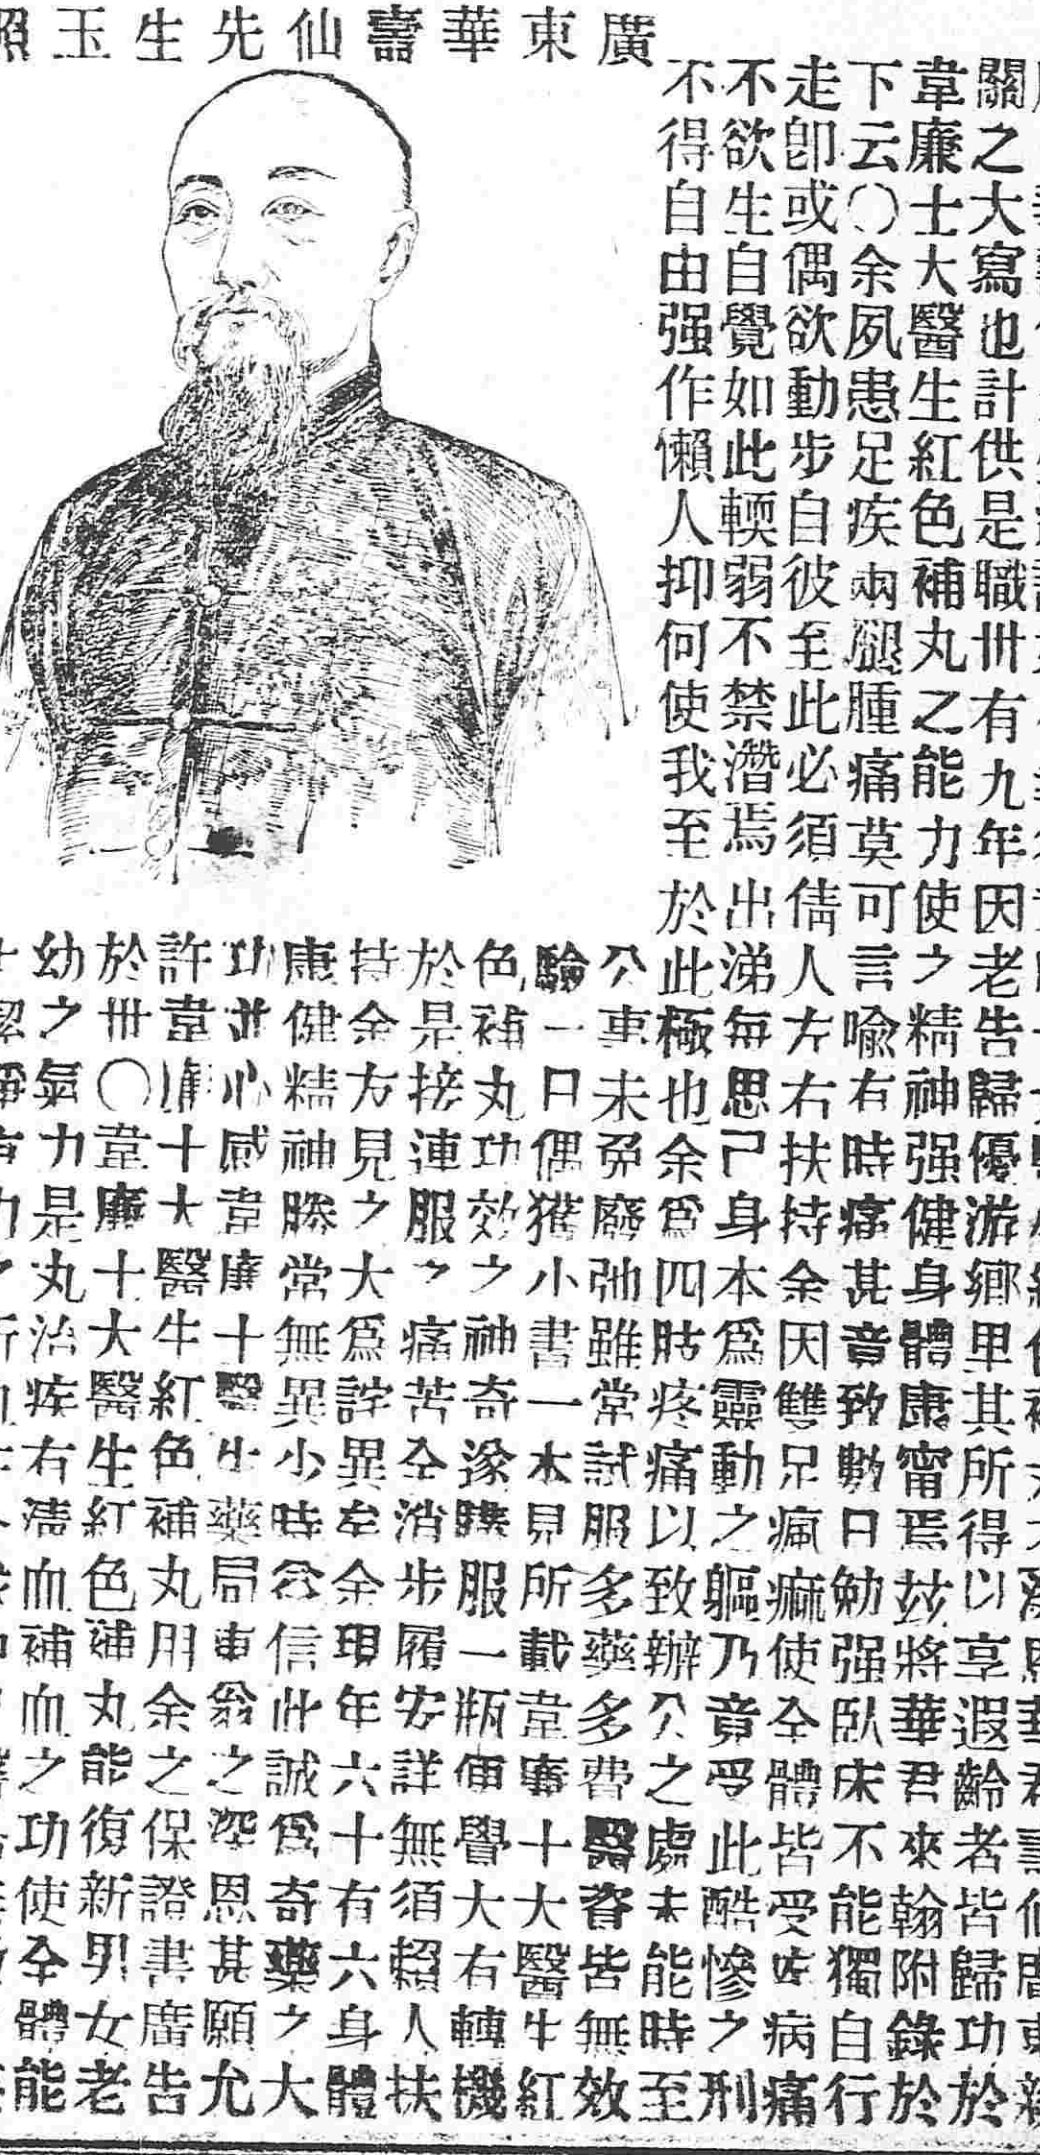 廣東華壽仙先生玉照
關之大寫也計供是職卅有九年因老告歸優游鄉里其所得以享遐齡者皆歸功於
韋廉士大醫生紅色補丸之能力使之精神强健身體康甯焉玆將華君來翰附錄於
下云〇余夙患足疾兩腿腫痛莫可言喩有時痛甚竟致數日勉强臥床不能獨自行
走卽或偶欲動步自彼至此必須倩人左右扶持余因雙足瘋痲使全體皆受病痛
不欲生自覺如此輭弱不禁潸焉出涕每思己身本爲靈動之軀乃竟受此酷慘之刑
不得自由强作懶人抑何使我至於此極也余爲四肢疼痛以致辦公之處未能時至
公事未免廢弛雖常試服多藥多費醫資皆無效
驗一日偶獲小書一本見所載韋廉士大醫生紅
色補丸功效之神奇遂購服一瓶便覺大有轉機
於是接連服之痛苦全消步履安詳無須賴人扶
持余方見之大爲詫異至余現年六十有六身體
康健精神勝常無異小時念信此誠爲奇藥之大
功並心感韋廉士醫生藥局東翁之深恩甚願允
許韋廉士大醫生紅色補丸用余之保證書廣告
於卅〇韋廉士大醫生紅色補丸能復新男女老
幼之氣力是丸治疾有淸血補血之功使全體能